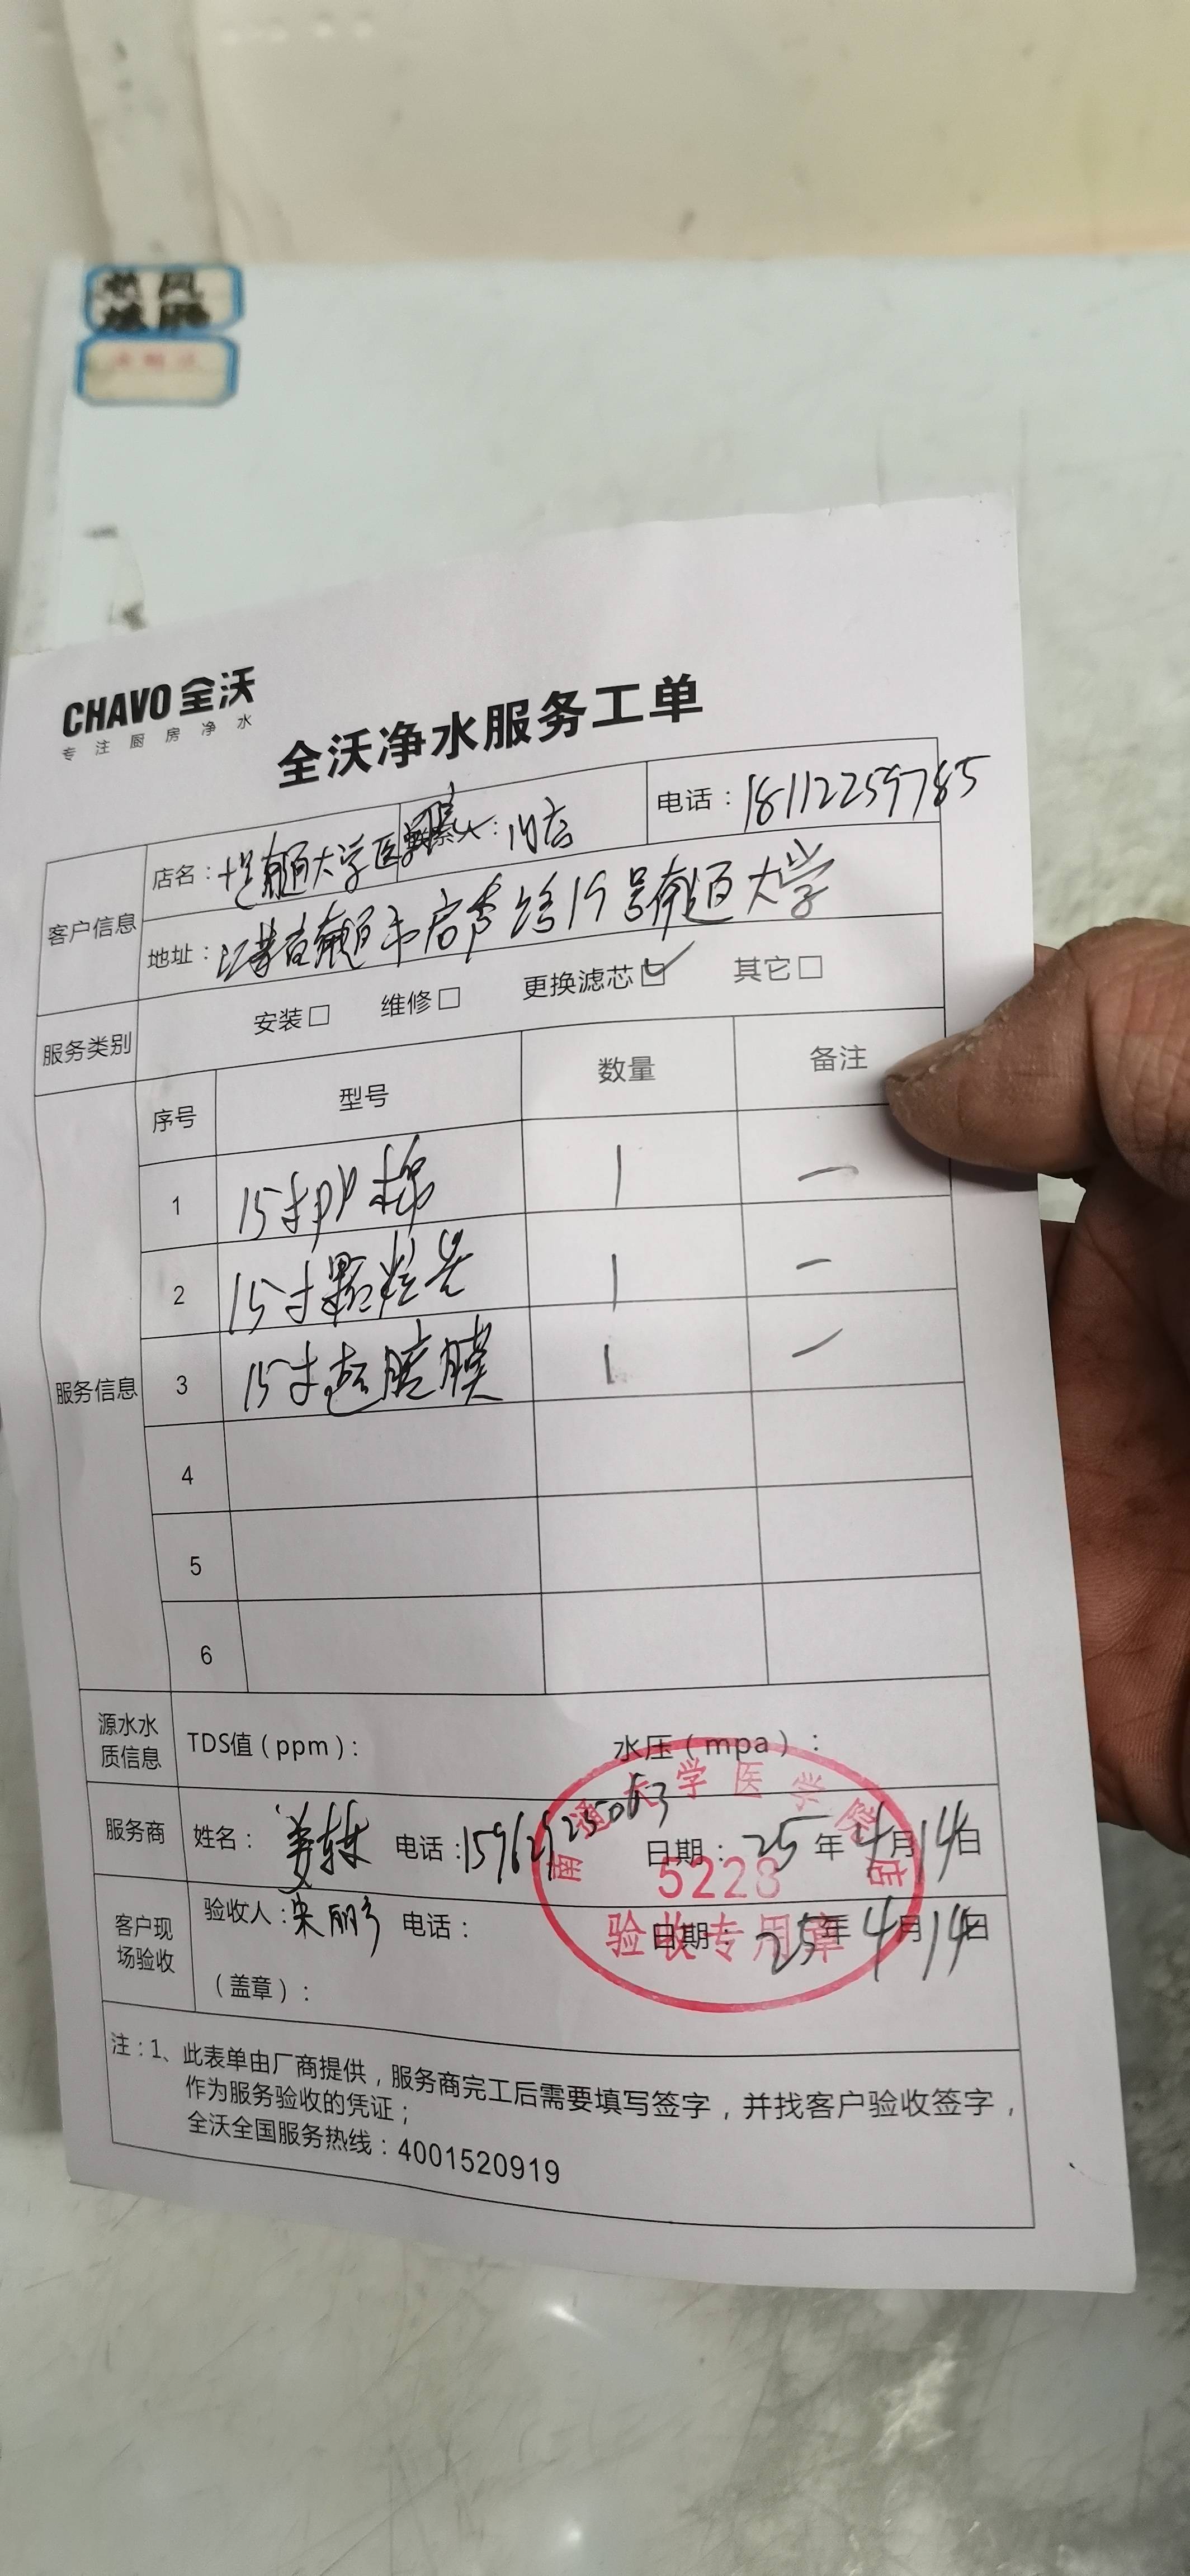 CHAVO 全沃
专注厨房净水
全沃净水服务工单
客户信息
店名：南通大学医 联系人： 电话：18112259785
地址：江苏省南通市启秀路19号南通大学
服务类别 安装□ 维修□ 更换滤芯☑ 其它□
服务信息
序号 型号 数量 备注
1 15寸PP棉 1 一
2 15寸颗粒炭 1 一
3 15寸超滤膜 1 一
4
5
6
源水水质信息 TDS值（ppm）： 水压（mpa）：
服务商 姓名：姜 电话：15962925063 日期：25年4月14日
客户现场验收 验收人：宋丽 电话： 日期：25年4月14日
（盖章）：
南通大学医学院店
5228
验收专用章
注：1、此表单由厂商提供，服务商完工后需要填写签字，并找客户验收签字，
作为服务验收的凭证；
全沃全国服务热线：4001520919